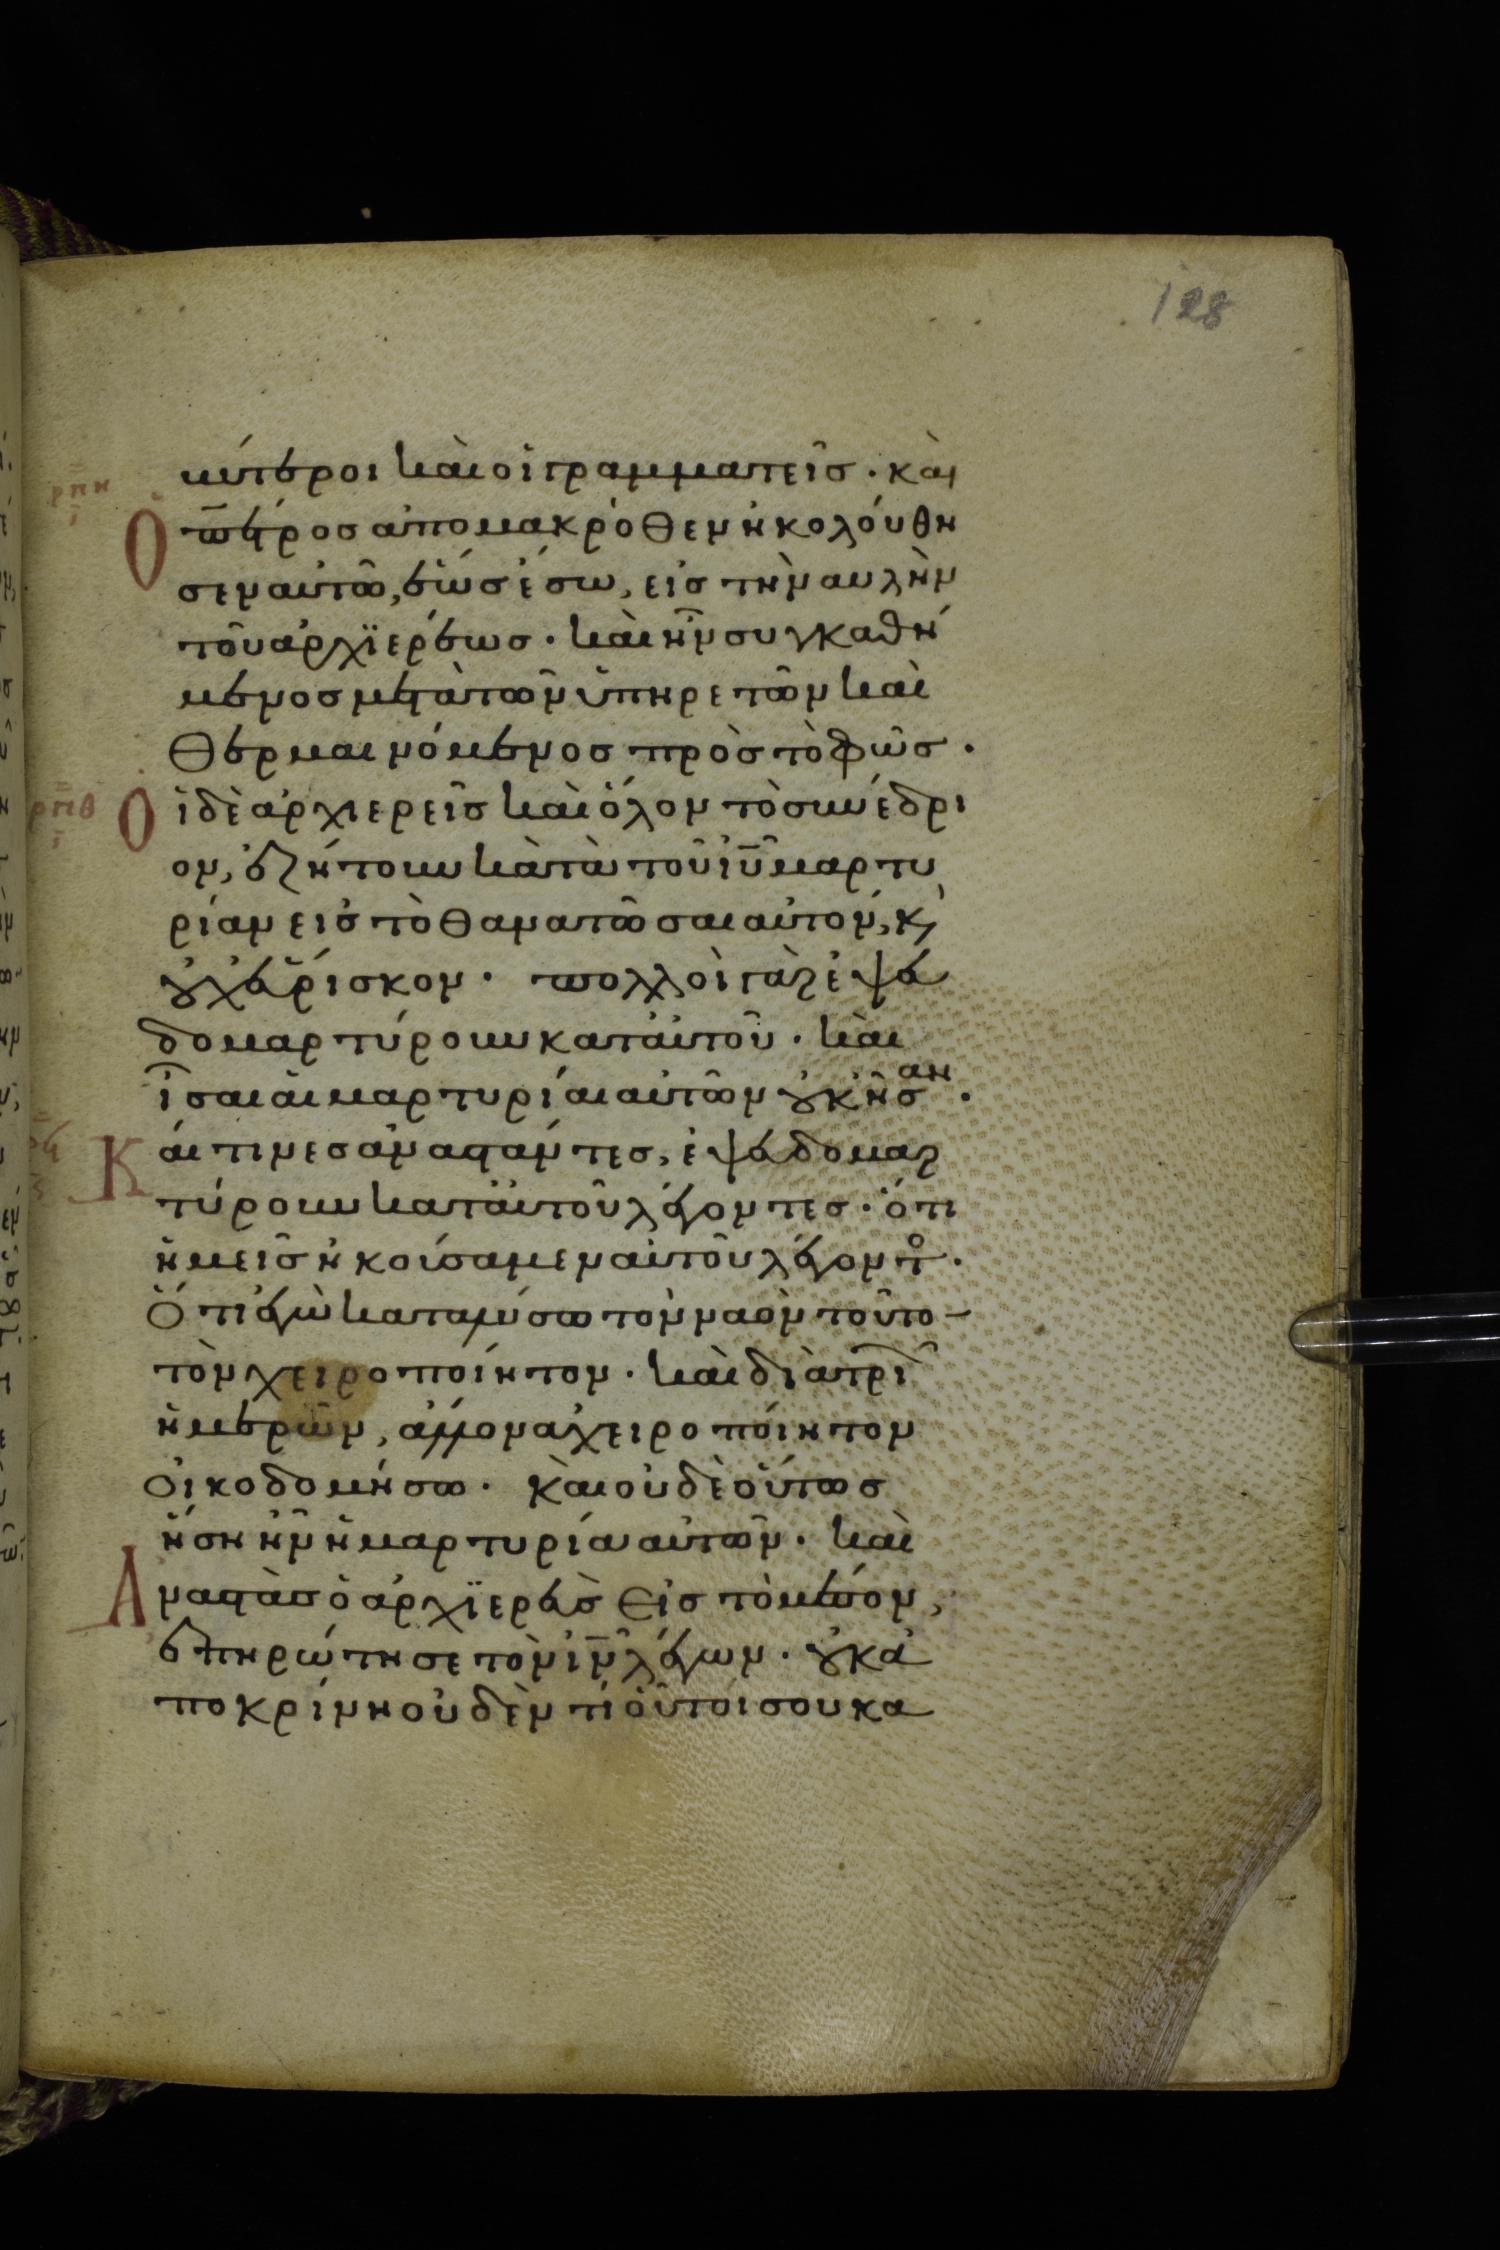 128
κύτεροι καὶ οἱ γραμματεῖσ · καὶ
ρπη
ι
Ὁ πέτροσ ἀπομακρόθεν ἠκολούθη
σεν αὐτῶ, ἕωσ ἔσω, εἰσ τὴν αυλὴν
τοῦ ἀρχϊερέωσ · καὶ ἦν συγκαθή
μενοσ μετὰ τῶν ὑπηρετῶν καὶ
θερμαινόμενοσ πρὸσ τὸ φῶσ ·
ρπθ
ι
Ὁἱ δὲ ἀρχιερεῖσ καὶ ὅλον τὸ συνέδρι
ον, ἐζήτουν κατὰ τοῦ ἰῦ μαρτυ
ρίαν εἰσ τὸ θανατῶσαι αὐτόν, κ
οὐχ᾽ εὕρισκον · πολλοὶ γὰρ ἐψευ
δομαρτύρουν κατ᾽αὐτοῦ · καὶ
ἶσαι αἱ μαρτυρίαι αὐτῶν οὐκ ἦσαν ·
Καί τινεσ ἀναστάντεσ, ἐψευδομαρ
τύρουν κατ᾽αὐτοῦ λέγοντεσ · ὅτι
ἡμεῖσ ἠκούσαμεν αὐτοῦ λέγοντο ·
Ὅτι ἐγὼ καταλύσω τὸν ναὸν τοῦτο–
τὸν χειροποίητον · καὶ διὰ τριῶ
ἡμερῶν, ἄλλον ἀχειροποίητον
οἰκοδομήσω · καὶ οὐδὲ οὕτωσ
ἤση ἦν ἡ μαρτυρία αὐτῶν · καὶ
Ἀναστὰσ ὁ ἀρχϊερεὺσ εἰσ τὸ μέσον,
ἐπηρώτησε τὸν ἰῦν λέγων · οὐκ ἀ
ποκρίνη οὐδὲν τί οὗτοί σου κα